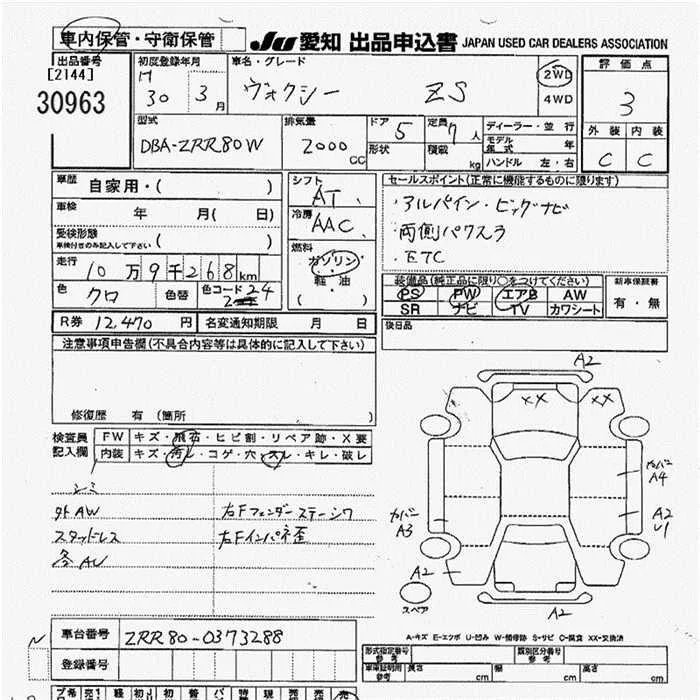 車内保管・守衛保管
JU 愛知 出品申込書 JAPAN USED CAR DEALERS ASSOCIATION
出品番号
[2144]
30963
初度登録年月
H
30 3月
車名・グレード
ヴォクシー ZS
2WD
4WD
評価点
3
外装 内装
C C
型式
DBA-ZRR80W
排気量
2000
CC
ドア 5
形状
定員 7 人
積載 kg
ディーラー・並行
モデル年式 年
ハンドル 左・右
車歴 自家用・( )
車検 年 月( 日)
受検形態
車検付きのみ記入して下さい ( )
走行 10万9千268km
色 クロ 色替 色コード 24
R券 12,470円 名変通知期限 月 日
シフト
AT
冷房
AAC
燃料
ガソリン
軽・油
( )
セールスポイント(正常に機能するものに限ります)
・アルパイン・ビッグナビ
・両側パワスラ
・ETC
装備品(純正品に限り○をつけてください)
PS PW エアB AW
SR ナビ TV カワシート
新車保証書
有・無
後日品
注意事項申告欄(不具合内容等は具体的に記入して下さい)
修復歴 有 (箇所 )
検査員記入欄
FW キズ・飛石・ヒビ割・リペア跡・X要
内装 キズ・汚レ・コゲ・穴・スレ・キレ・破レ
シミ
外AW 右Fフェンダーステーシワ
スタッドレス 右Fインパネ歪
冬AW
A2
XX XX
カバー
A4
カバー
A3
A2
U1
A2
A2
スペア
A-キズ E-エクボ U-凹み W-補修跡 S-サビ C-腐食 XX-交換済
N
車台番号 ZRR80-0373288
登録番号
型式指定番号 参考
類別区分番号 参考
車庫証明用 参考 長さ cm 幅 cm 高さ cm